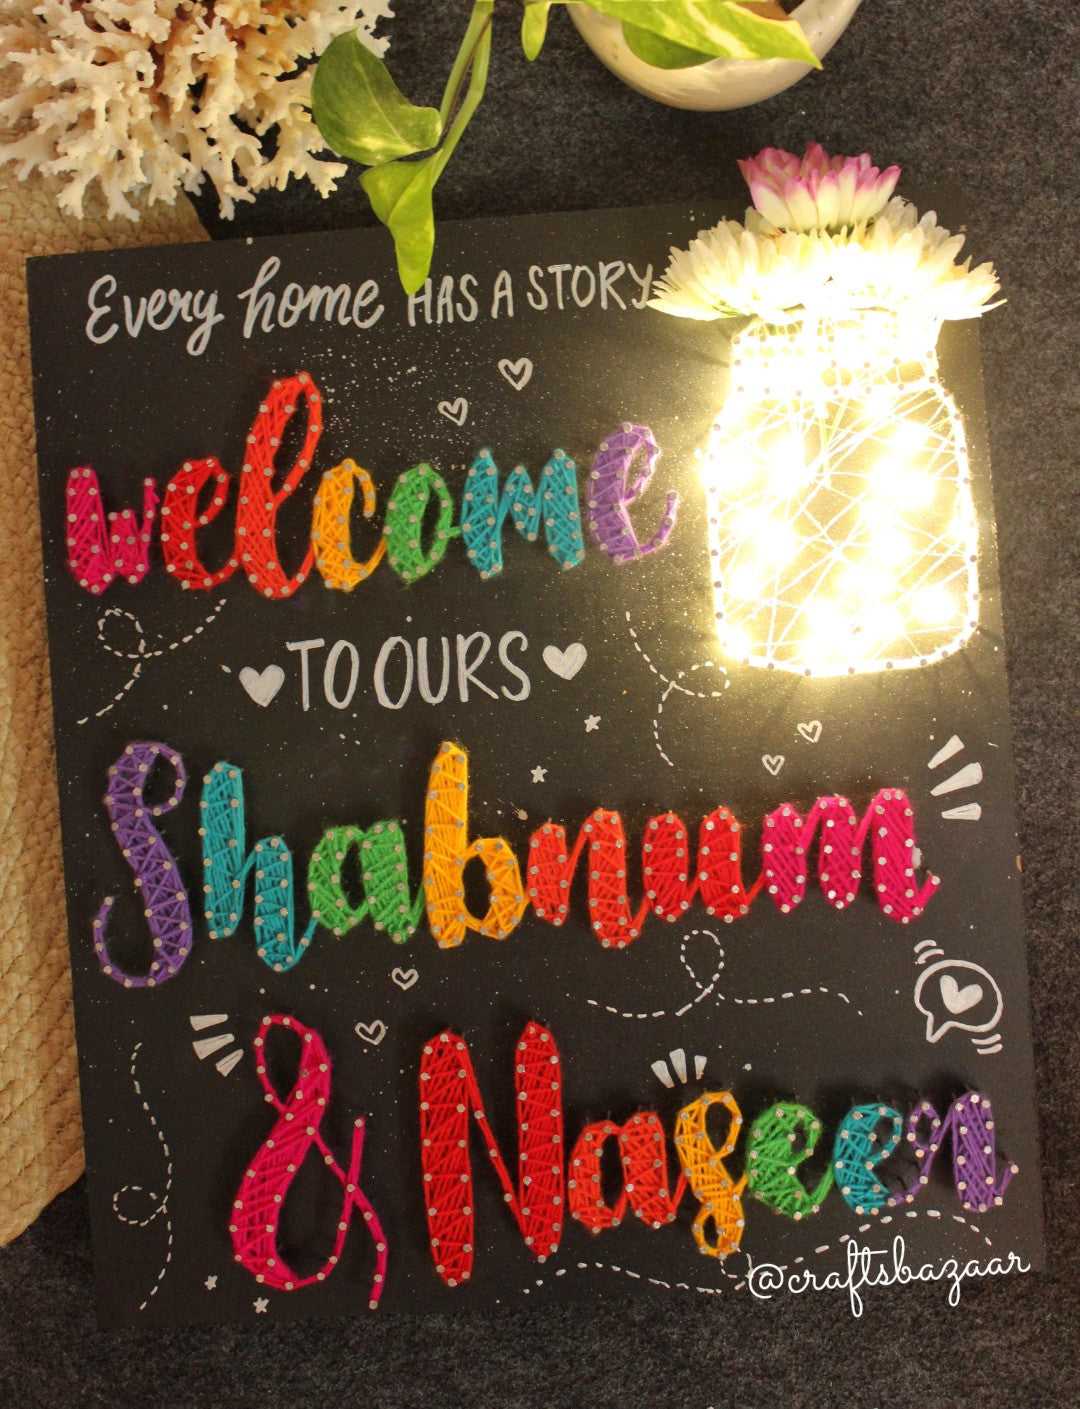 Every home HAS A STORY
welcome
TO OURS
Shabnum
& Nazeen
@craftsbazaar